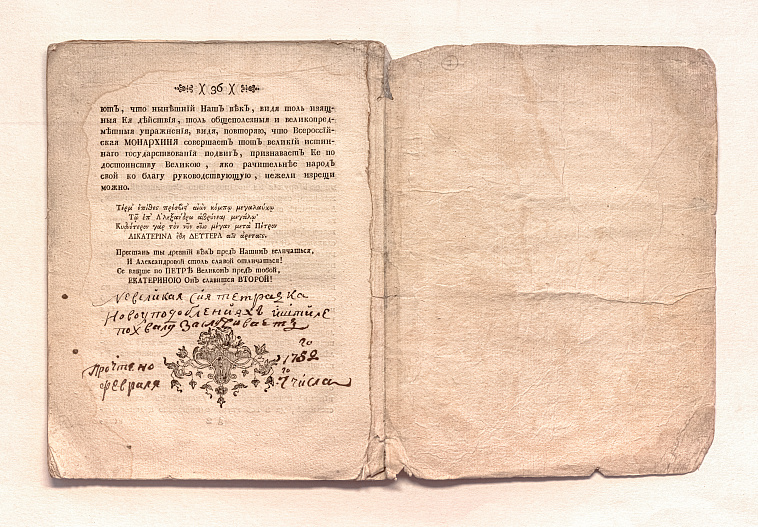 )( 36 )(
ютъ, что нынѣшній Нашъ вѣкъ, видя толь изящ-
ныя Ея дѣйствія, толь общеполезныя и великопред-
мѣтныя упражненія, видя, повторяю, что Всероссій-
ская МОНАРХИНЯ совершаетъ тотъ великій истин-
наго государствованія подвигъ, признаваетъ Ее по
достоинству Великою, яко рачительнѣе народъ
свой ко благу руководствующую, нежели изрещи
можно.
Τῷ ἐπ' Ἀλεξάνδρῳ
Κυδιότερον γὰρ τὸν νῦν μέγαν μετὰ Πέτρον
ΑΙΚΑΤΕΡΙΝΑ ἔθη ΔΕΥΤΕΡΑ
Престань ты древній вѣкъ предъ Нашимъ величаться,
И Александровой столь славой отличаться!
Се вящше по ПЕТРѢ Великомъ предъ тобой,
ЕКАТЕРИНОЮ Онъ славится ВТОРОЙ!
невеликая сия тетратка
Новоуподоблениях и штиле
похвалу заслуживаетъ
Прочтено 17 го
февраля 7 го числа